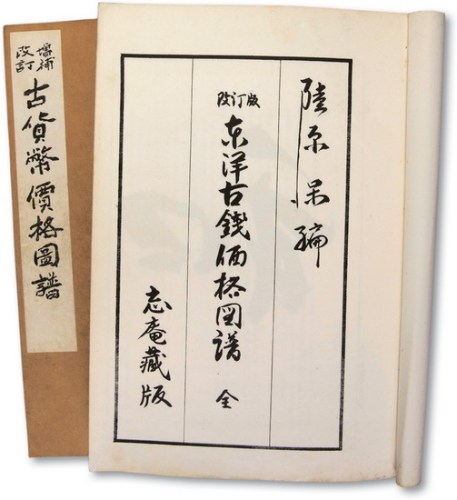 陸原保編
改訂版
東洋古錢価格図譜 全
忘庵藏版
増補
改訂
古貨幣價格圖譜